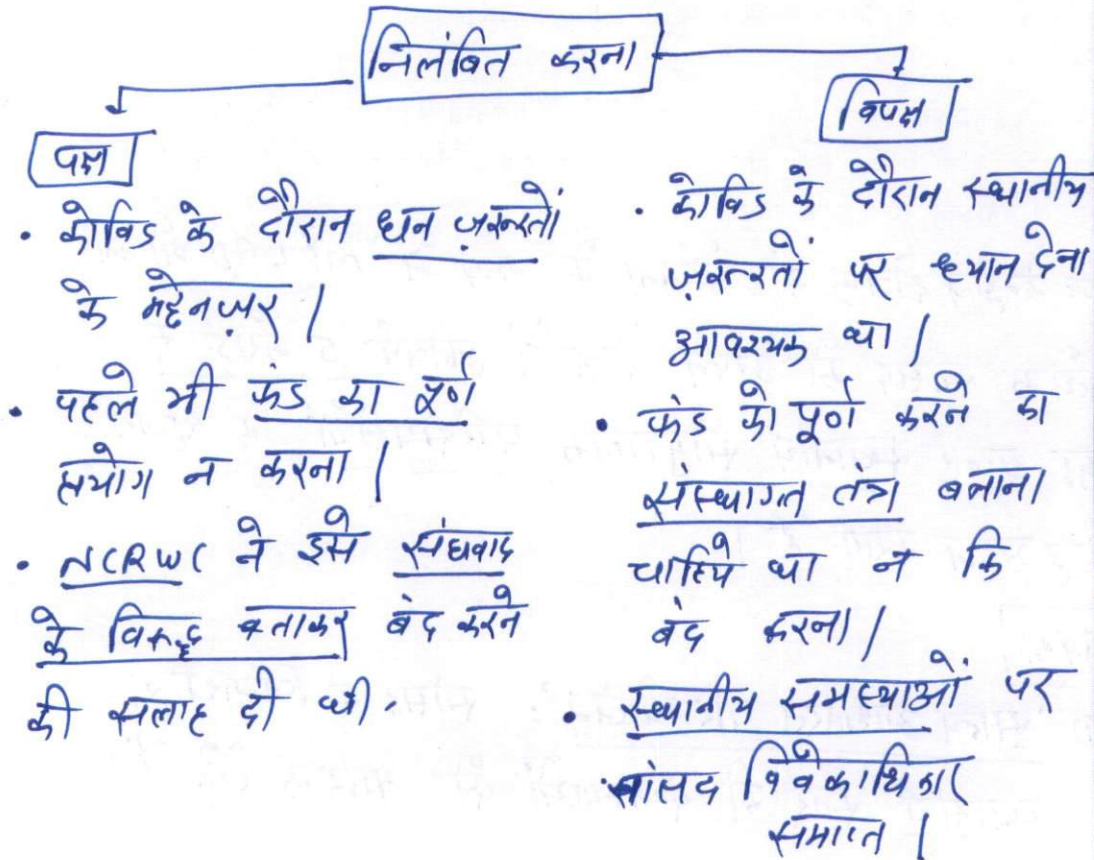 निलंबित करना
पक्ष
• कोविड के दौरान धन ज़रूरतों
के मद्देनज़र |
• पहले भी फंड का पूर्ण
प्रयोग न करना |
• NCRWC ने इसे संघवाद
के विरूद्ध बताकर बंद करने
की सलाह दी थी.
विपक्ष
• कोविड के दौरान स्थानीय
ज़रूरतों पर ध्यान देना
आवश्यक था |
• फंड को पूर्ण करने का
संस्थागत तंत्र बनाना
चाहिये था न कि
बंद करना |
• स्थानीय समस्याओं पर
सांसद विवेकाधिकार
समाप्त |